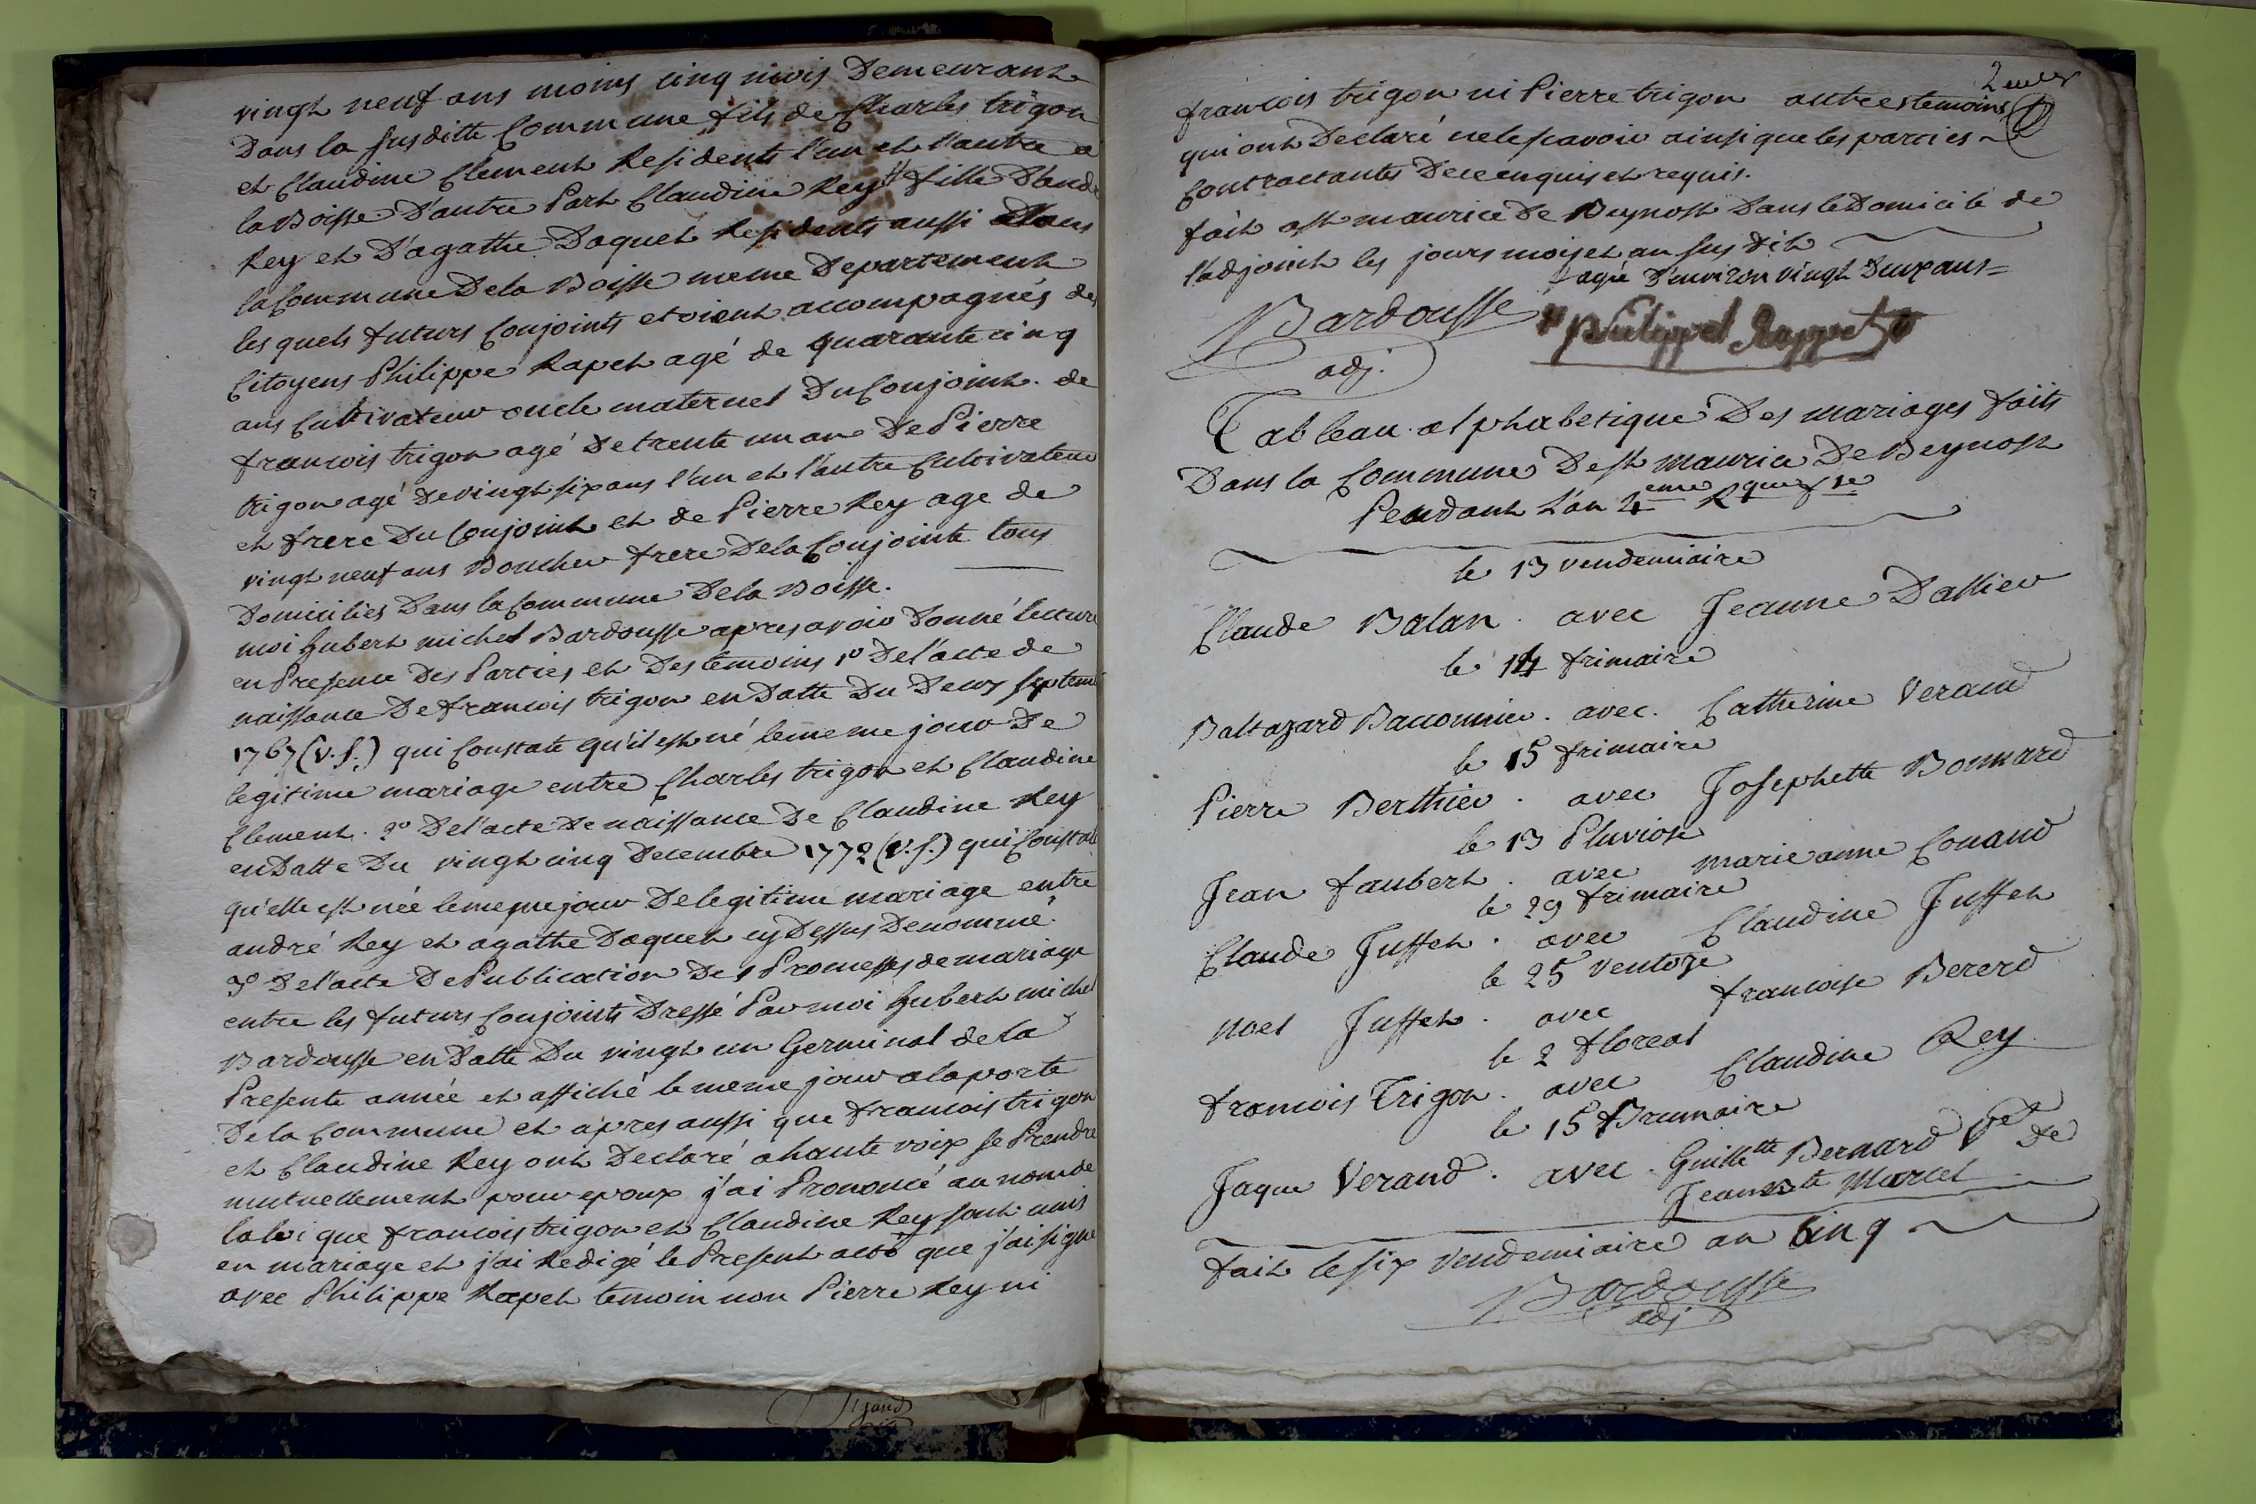 vingt neuf ans moins cinq mois Demeurant
Dans la susditte Commune fils de Charles trigon
et Claudine Clement Residents l'un et l'autre a
la Boisse D'autre Part Claudine Rey # fille D'andré
Rey et D'agathe Daquet Residents aussi Dans
la Commune De la Boisse meme Departement
les quels futurs Conjoints etoient accompagnés des
Citoyens Philippe Rapet agé de quarante cinq
ans Cultivateur oncle maternel Du Conjoint. de
francois trigon agé De trente un an De Pierre
trigon agé De vingt six ans l'un et l'autre Cultivateur
et frere Du Conjoint et de Pierre Rey age de
vingt neuf ans Boucher frere De la Conjointe tous
Domiciliés Dans la Commune De la Boisse.
moi hubert michel Bardousse apres avoir Donné lecture
en Presence Des Parties et Des temoins 1º De l'acte de
naissance De francois trigon en Datte Du Deux septem
1767 (v. s.) qui Constate qu'il est né le meme jour De
legitime mariage entre Charles trigon et Claudine
Clement. 2º De l'acte De naissance De Claudine Rey
en Datte Du vingt cinq Decembre 1772 (v. s.) qui Constate
qu'elle est née le meme jour De legitime mariage entre
andré Rey et agathe Daquet cy Dessus Denommé.
3º De l'acte De Publication Des Promesses de mariage
entre les futurs Conjoints Dressé Par moi hubert michel
Bardousse en Datte Du vingt un Germinal de la
Presente année et affiché le meme jour a la porte
De la Commune et apres aussi que francois trigon
et Claudine Rey ont Declaré a haute voix se Prendre
mutuellement pour epoux j'ai Prononcé au nom de
la loi que francois trigon et Claudine Rey sont unis
en mariage et j'ai Redigé le Present acte que j'ai signé
avec Philippe Rapet temoin non Pierre Rey ni
francois trigon ni Pierre trigon autres temoins
qui ont Declaré ne le scavoir ainsi que les parties
Contractantes De ce enquis et requis.
fait a St maurice De Beynost Dans le Domicile de
l'adjoint les jours mois et an sus dit
# agée D'environ vingt Deux ans =
Bardousse
adj.
# Philippel Rappet #
Tableau alphabetique Des mariages faits
Dans la Commune De St maurice De Beynost
Pendant L'an 4eme Rque fse
le 13 vendemiaire
Claude Balan. avec Jeanne Dallier
le 14 frimaire
Baltazard Bauonnier. avec. Catherine Verand
le 15 frimaire
Pierre Berthier. avec Josephette Bonnard
le 13 Pluviose
Jean faubert. avec marie anne Conand
le 29 frimaire
Claude Juffet. avec Claudine Juffet
le 25 ventoze
noel Juffet. avec francoise Bererd
le 2 floreal
francois Trigon. avec Claudine Rey
le 15 Brumaire
Jaque Verand. avec. Guillette Bernard Ve De
Jeannette Marcel
fait le six vendemiaire an Cinq
Bardousse
adj